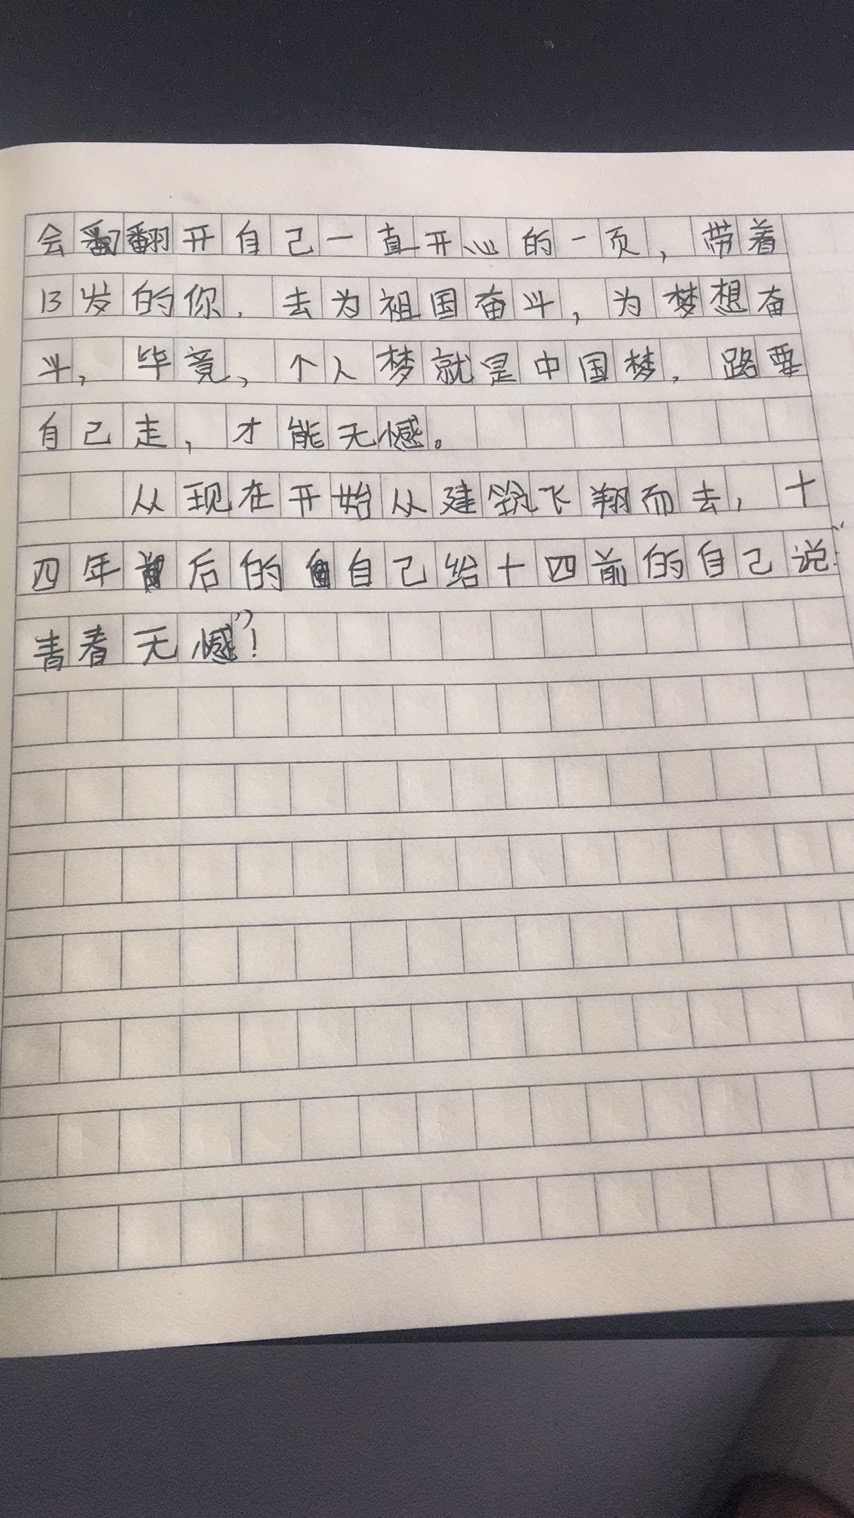 会翻开自己一直开心的一页，带着
13岁的你，去为祖国奋斗，为梦想奋
斗，毕竟，个人梦就是中国梦，路要
自己走，才能无憾。
从现在开始从建筑飞翔而去，十
四年后的自己给十四前的自己说：“
青春无憾”！